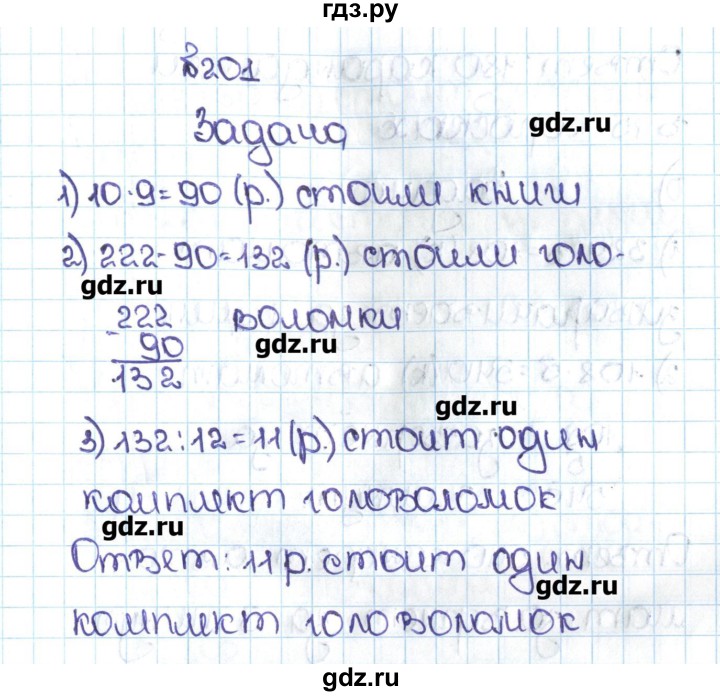 гдз.ру
№201
Задача
gdz.ru
1) 10·9=90 (р.) стоили книги
2) 222-90=132 (р.) стоили голо-
gdz.ru
222 воломки
- 90
gdz.ru
132
gdz.ru
3) 132:12=11 (р.) стоит один
комплект головоломок
gdz.ru
Ответ: 11 р. стоит один
gdz.ru
комплект головоломок
gdz.ru